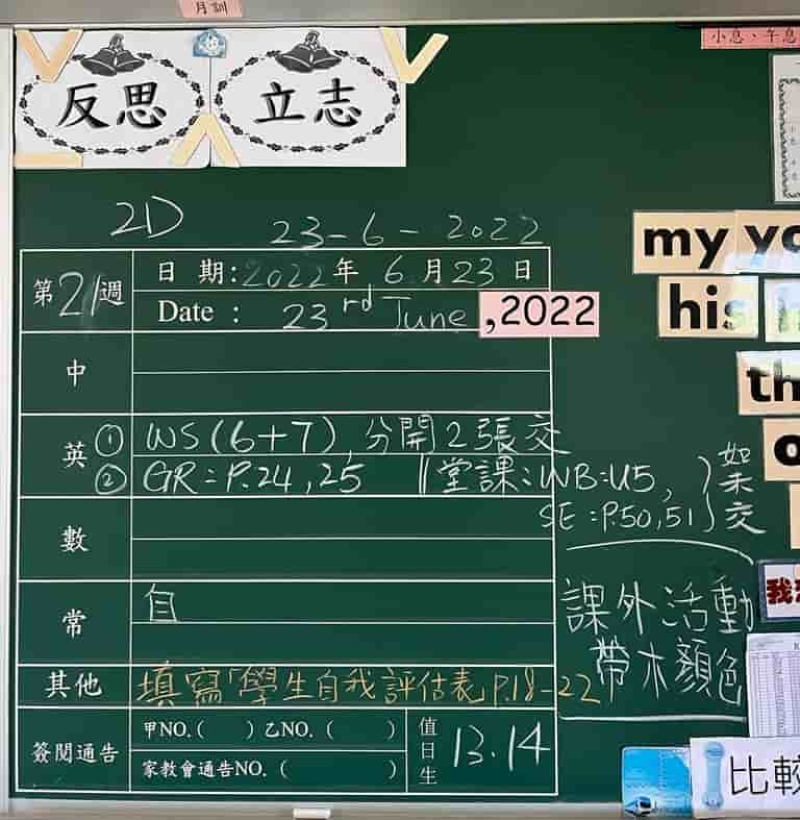 月訓
小息、午息
反思
立志
2D
23-6-2022
第21週
日期:2022年6月23日
Date : 23rd June ,2022
中
英
① WS(6+7), 分開2張交
② GR:P.24,25
堂課:WB:U5,
SE:P.50,51
如未交
數
常
自
課外活動
帶木顏色
其他
填寫「學生自我評估表P.18-22
簽閱通告
甲NO.( ) 乙NO.( )
家教會通告NO.( )
值日生
13.14
my
his
比較